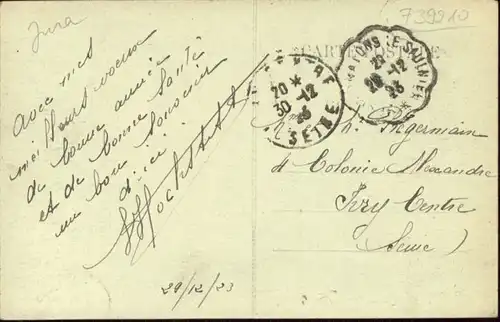 Jura
739910
Avec mes
meilleurs voeux
de bonne année
et de bonne santé
un bon souvenir
d'ici
29/12/23
CARTE POSTALE
20 *
30-12
23
SEINE
LONS-LE-SAULNIER
29-12
23
Ingermain
4 Colonie Alexandre
Ivry Centre
(Seine)